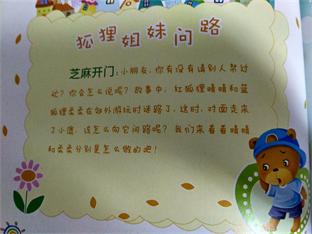 狐狸姐妹问路
芝麻开门：小朋友，你有没有请别人帮过
忙？你会怎么说呢？故事中，红狐狸晴晴和蓝
狐狸柔柔在郊外游玩时迷路了，这时，对面走来
了小鹿，该怎么向它问路呢？我们来看看晴晴
和柔柔分别是怎么做的吧！